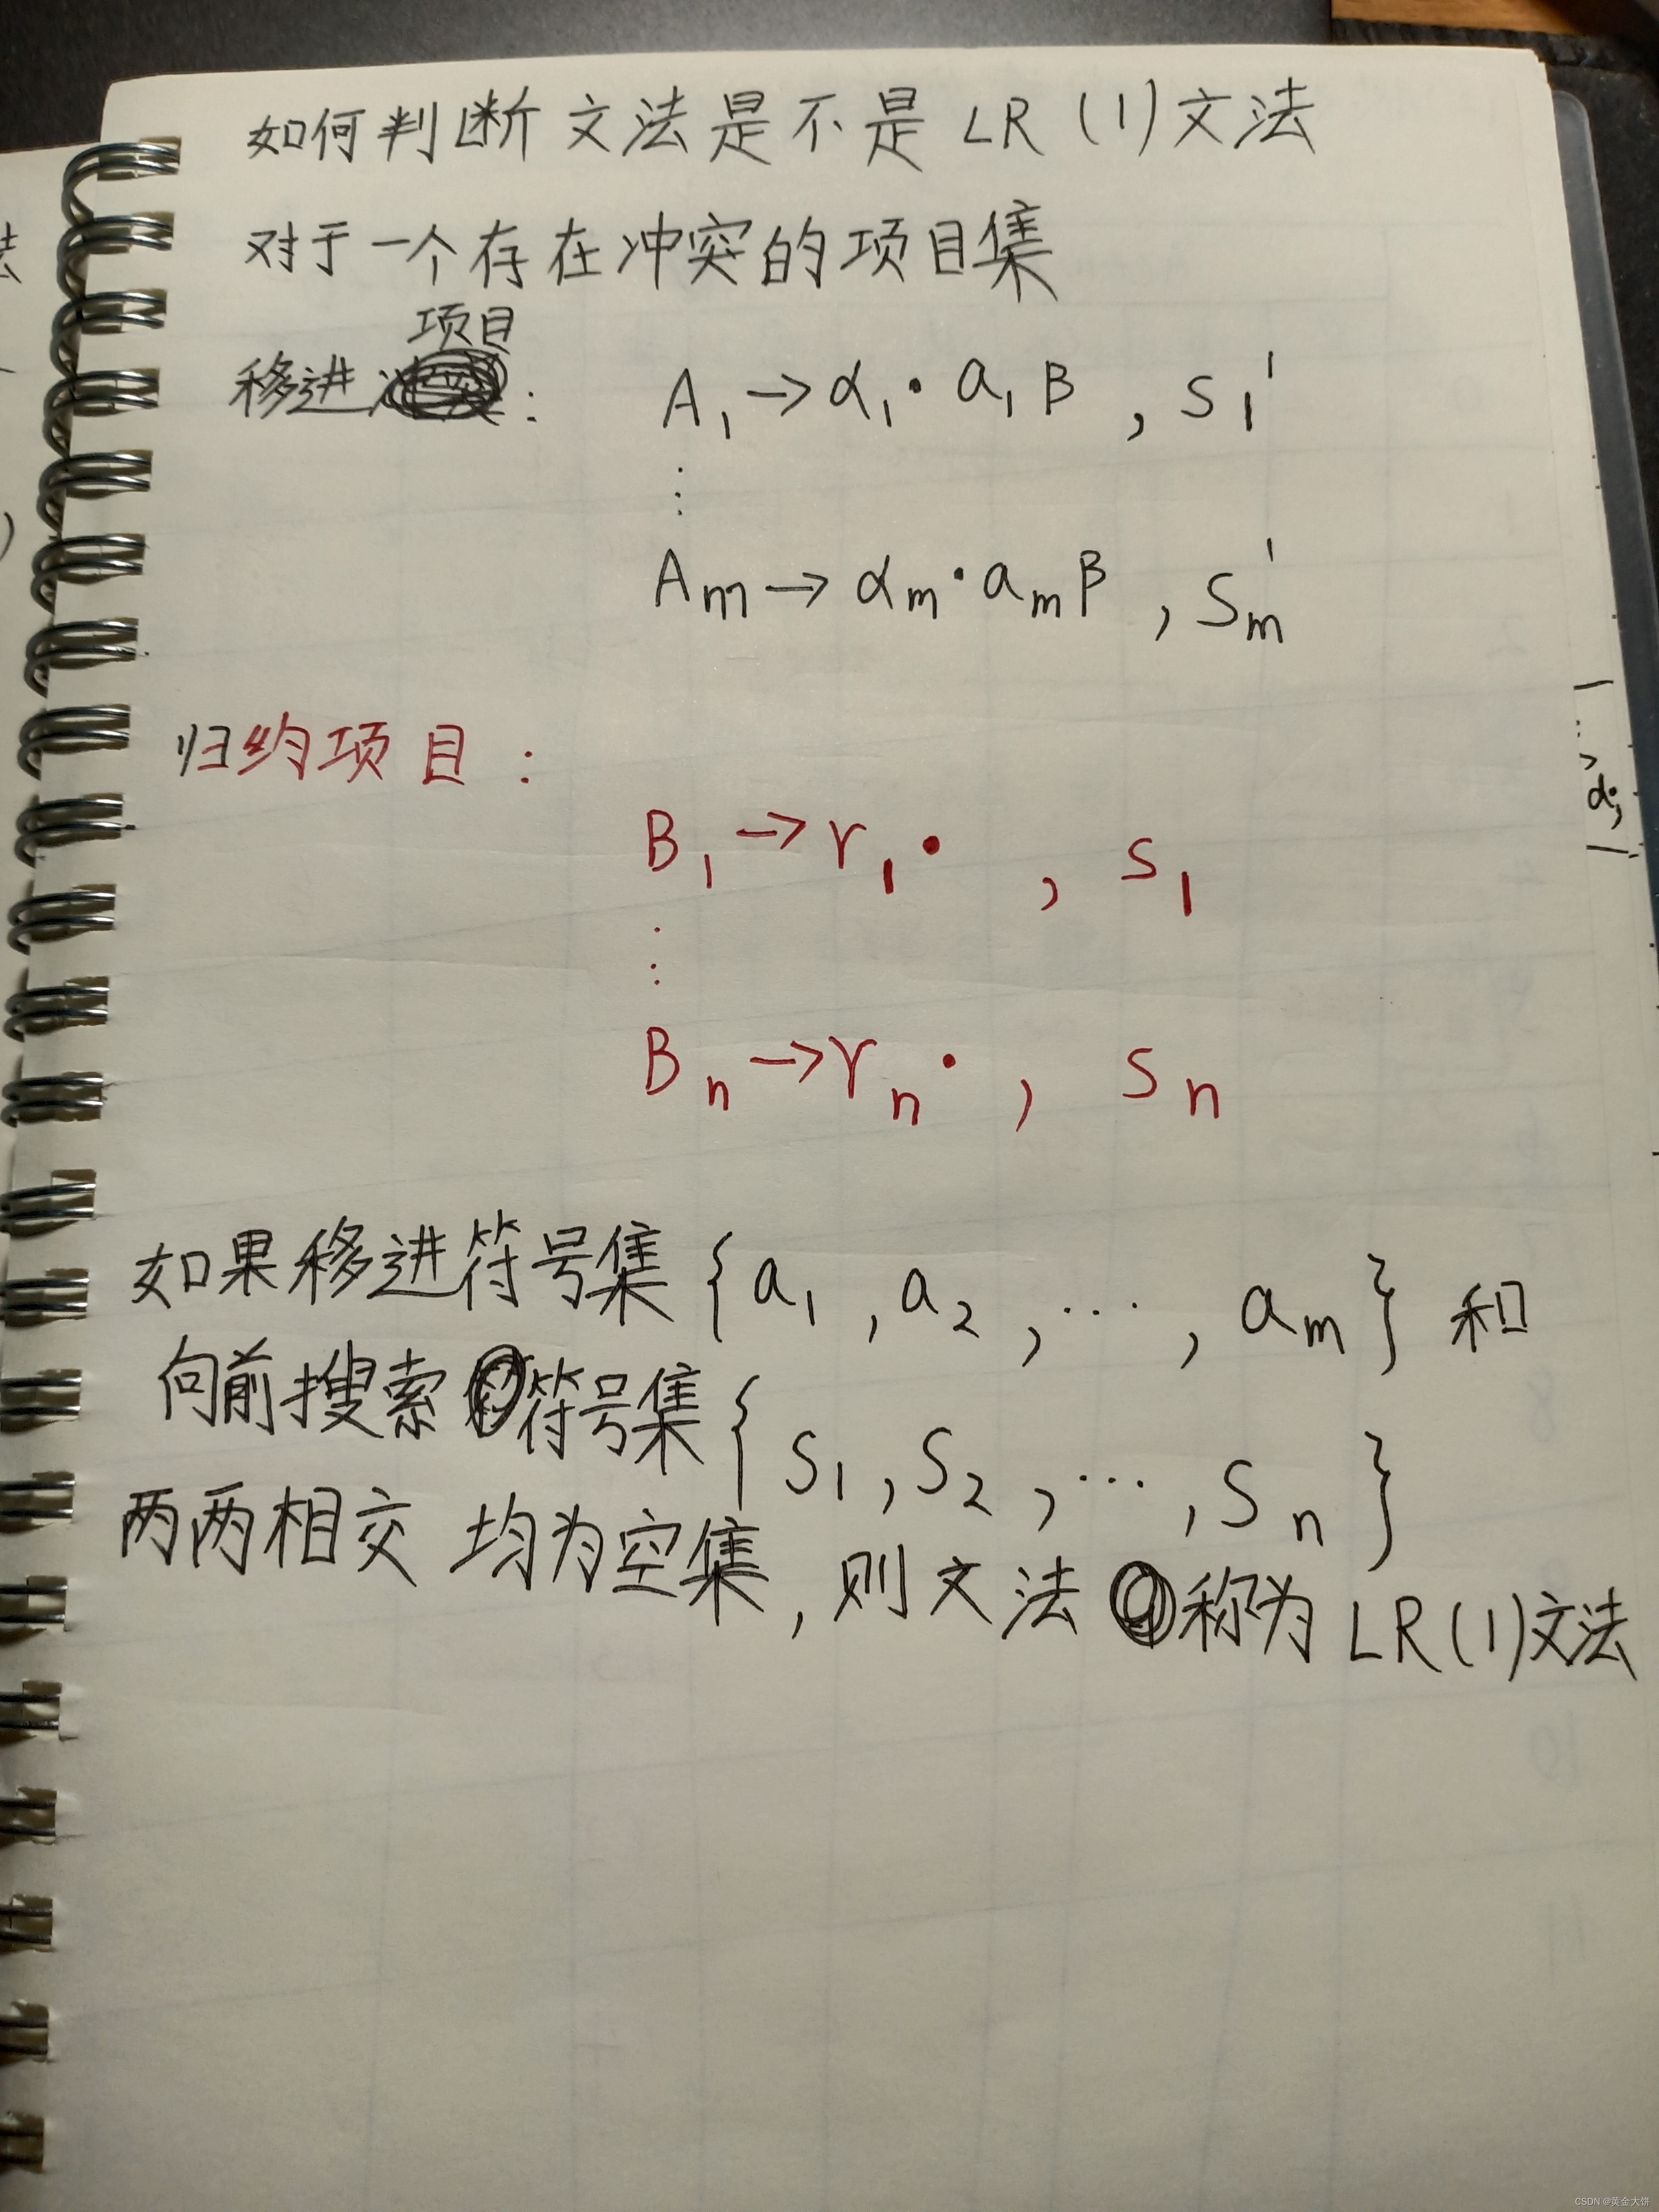 如何判断文法是不是 LR (1) 文法
对于一个存在冲突的项目集
项目
移进 : A₁ → α₁ · a₁ β , S₁'
⋮
Aₘ → αₘ · aₘ β , Sₘ'
归约项目 :
B₁ → γ₁ · , S₁
⋮
Bₙ → γₙ · , Sₙ
如果移进符号集 {a₁ , a₂ , … , aₘ} 和
向前搜索符号集 {S₁ , S₂ , … , Sₙ}
两两相交 均为空集 , 则文法称为 LR (1) 文法
CSDN @黄金大饼